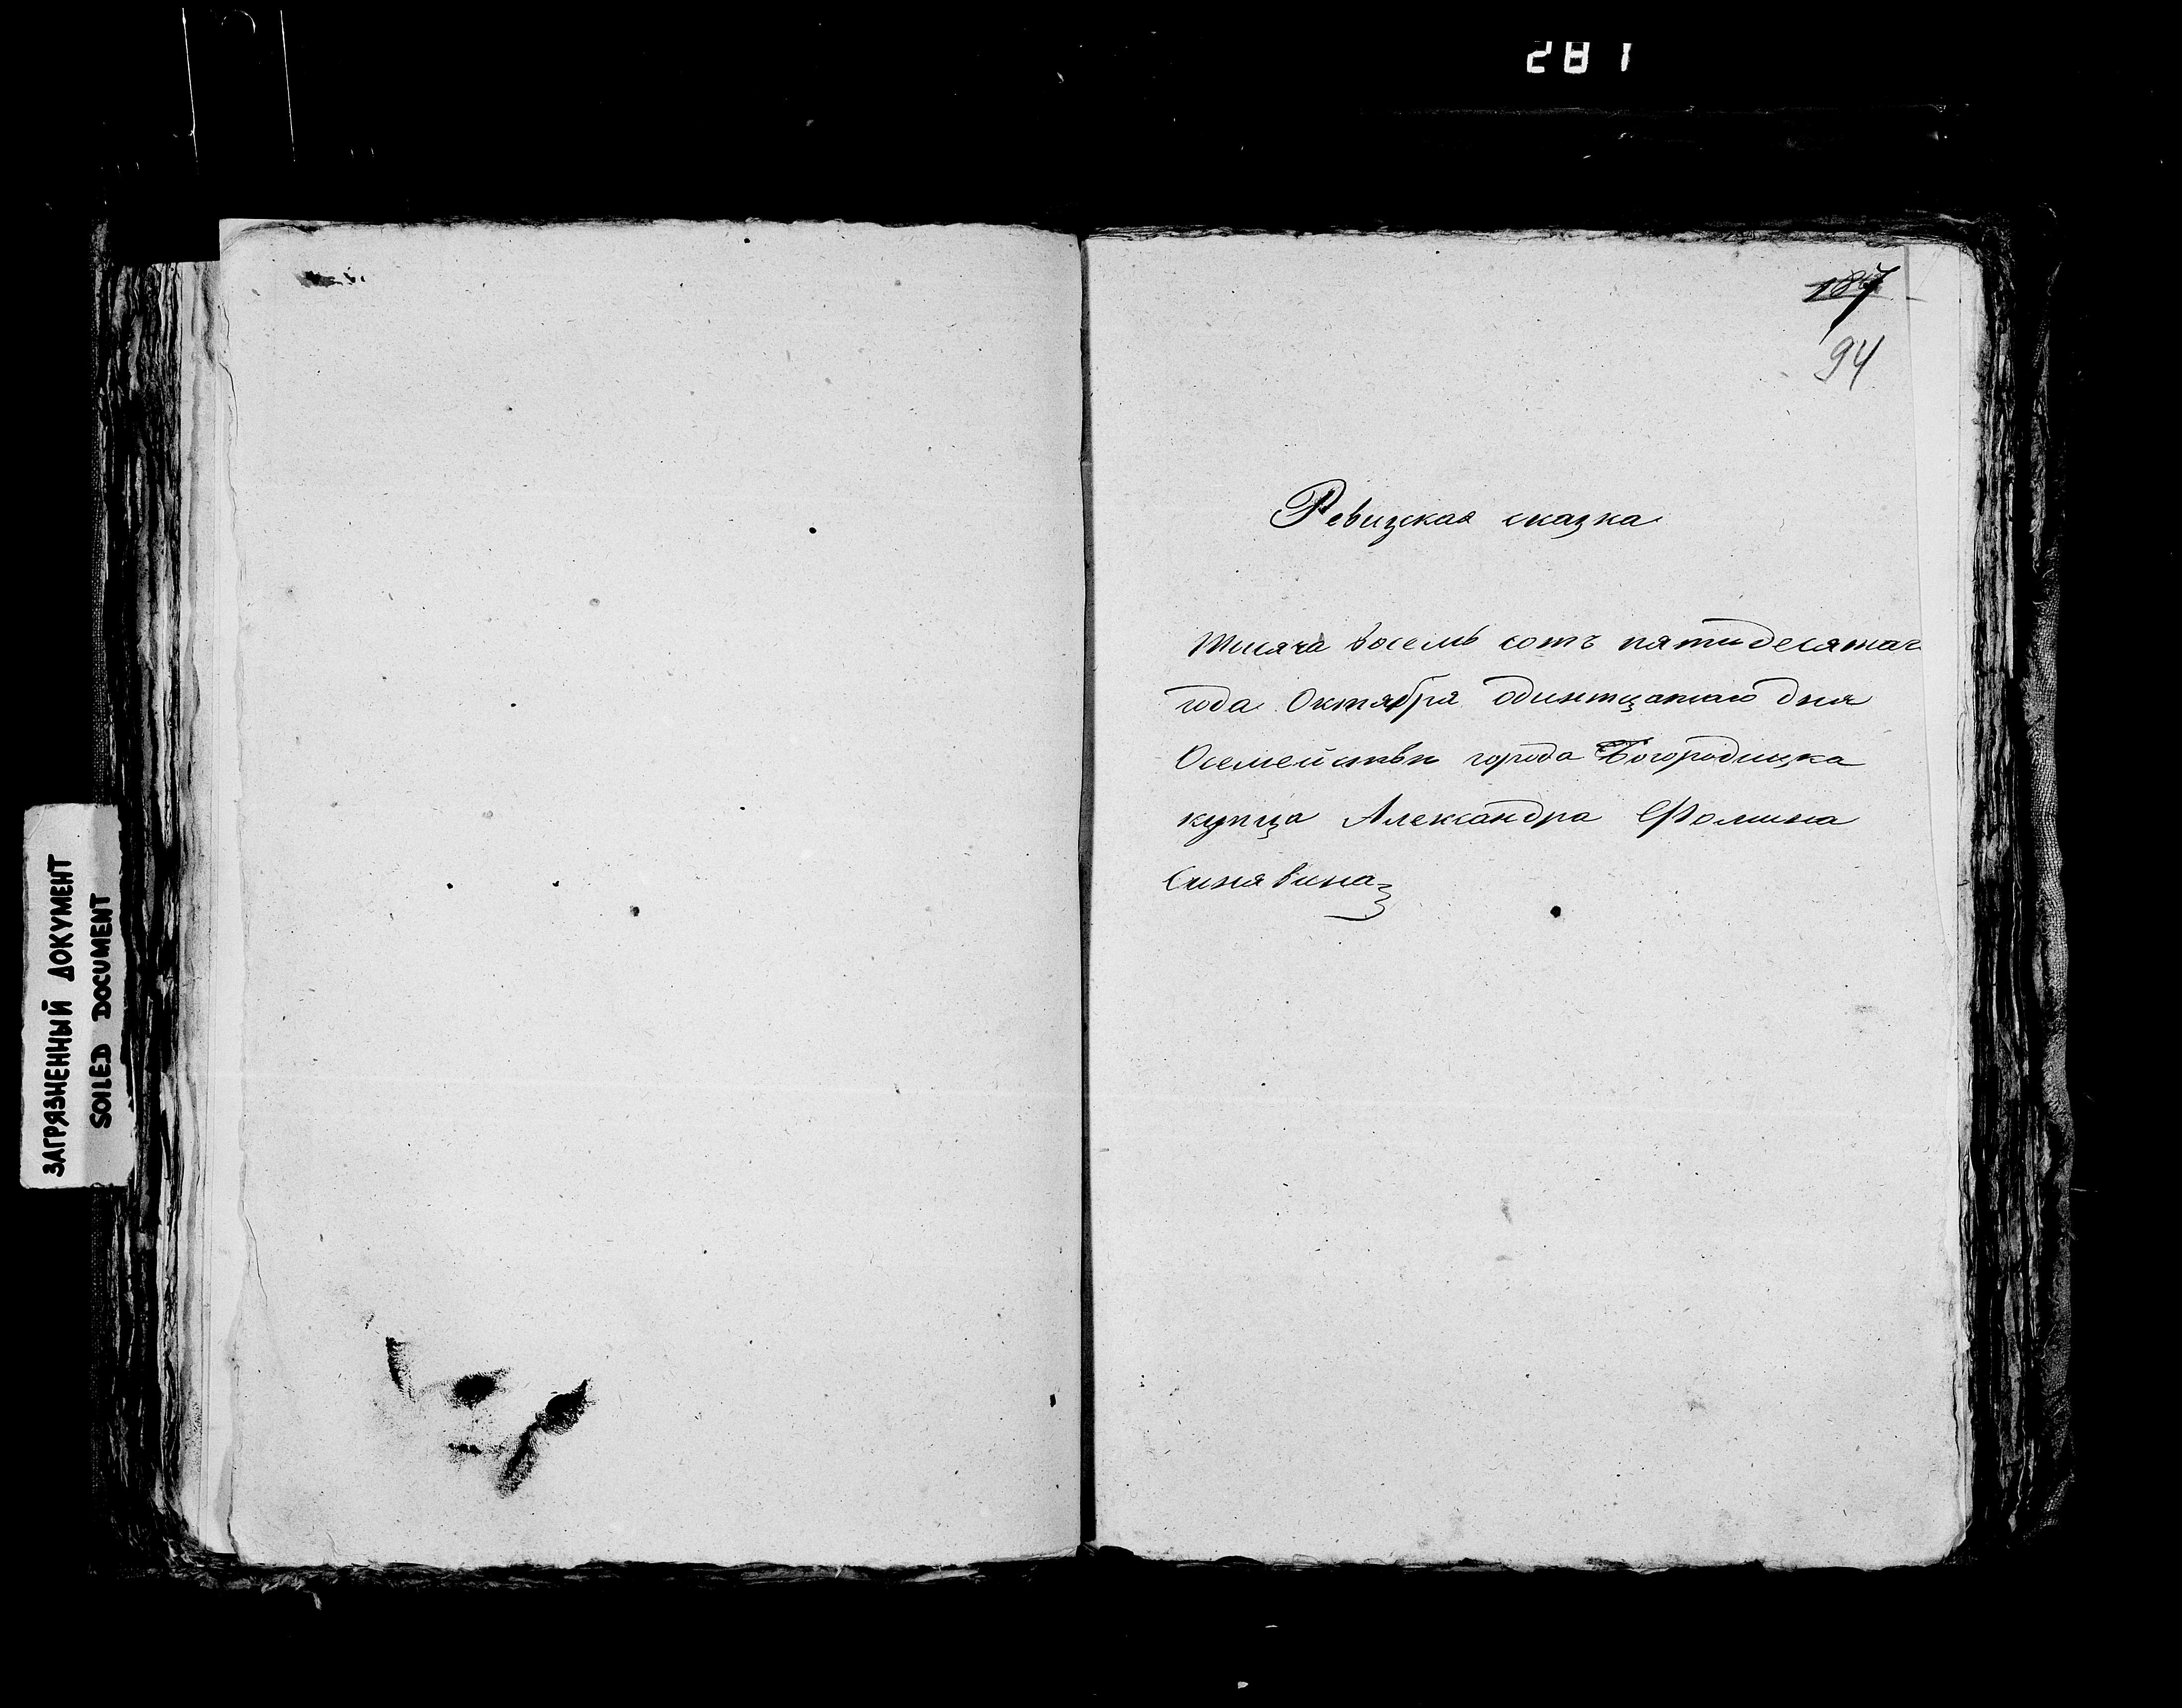 281
187
94
Ревизская сказка
Тысяча восемь сотъ пятидесятаг
года Октября одинтцатаго дня
Осемействѣ города Богородицка
купца Александра Фомина
Синявина
ЗАГРЯЗНЕННЫЙ ДОКУМЕНТ
SOILED DOCUMENT